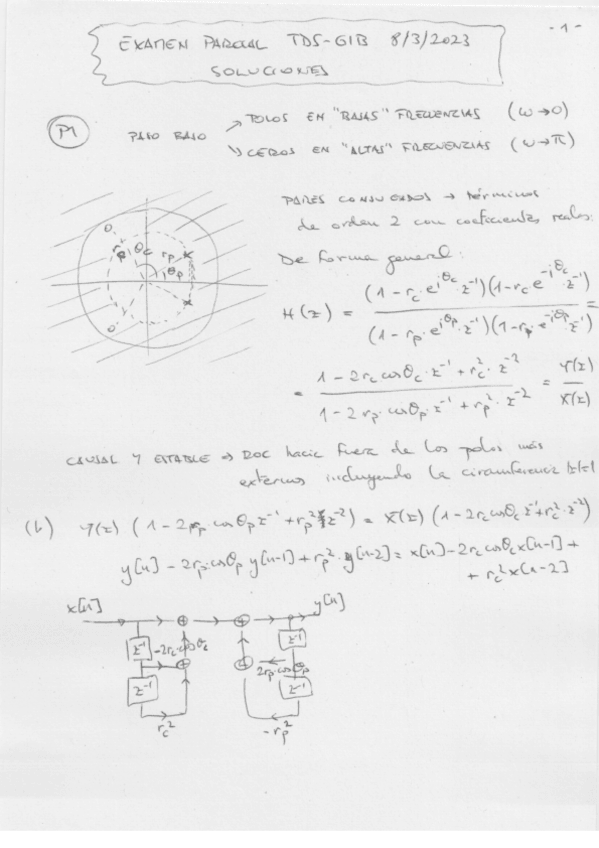 - 1 -
EXAMEN PARCIAL TDS-GIB 8/3/2023
SOLUCIONES
P1
PASO BAJO
→ POLOS EN "BAJAS" FRECUENCIAS (ω→0)
→ CEROS EN "ALTAS" FRECUENCIAS (ω→π)
PARES CONJUGADOS → términos
de orden 2 con coeficientes reales.
De forma general:
H(z) = (1 - r_c·e^{jθ_c}·z^{-1})(1 - r_c·e^{-jθ_c}·z^{-1}) / (1 - r_p·e^{jθ_p}·z^{-1})(1 - r_p·e^{-jθ_p}·z^{-1}) =
= 1 - 2r_c cosθ_c·z^{-1} + r_c^2·z^{-2} / 1 - 2r_p·cosθ_p·z^{-1} + r_p^2·z^{-2} = Y(z) / X(z)
r_c θ_c r_p θ_p
CAUSAL Y ESTABLE → ROC hacia fuera de los polos más
externos incluyendo la circunferencia |z|=1
(b) Y(z) (1 - 2r_p cosθ_p z^{-1} + r_p^2 z^{-2}) = X(z) (1 - 2r_c cosθ_c z^{-1} + r_c^2·z^{-2})
y[n] - 2r_p·cosθ_p y[n-1] + r_p^2·y[n-2] = x[n] - 2r_c cosθ_c x[n-1] +
+ r_c^2 x[n-2]
x[n] y[n]
z^{-1} -2r_c cosθ_c 2r_p·cosθ_p z^{-1}
z^{-1} z^{-1}
r_c^2 -r_p^2